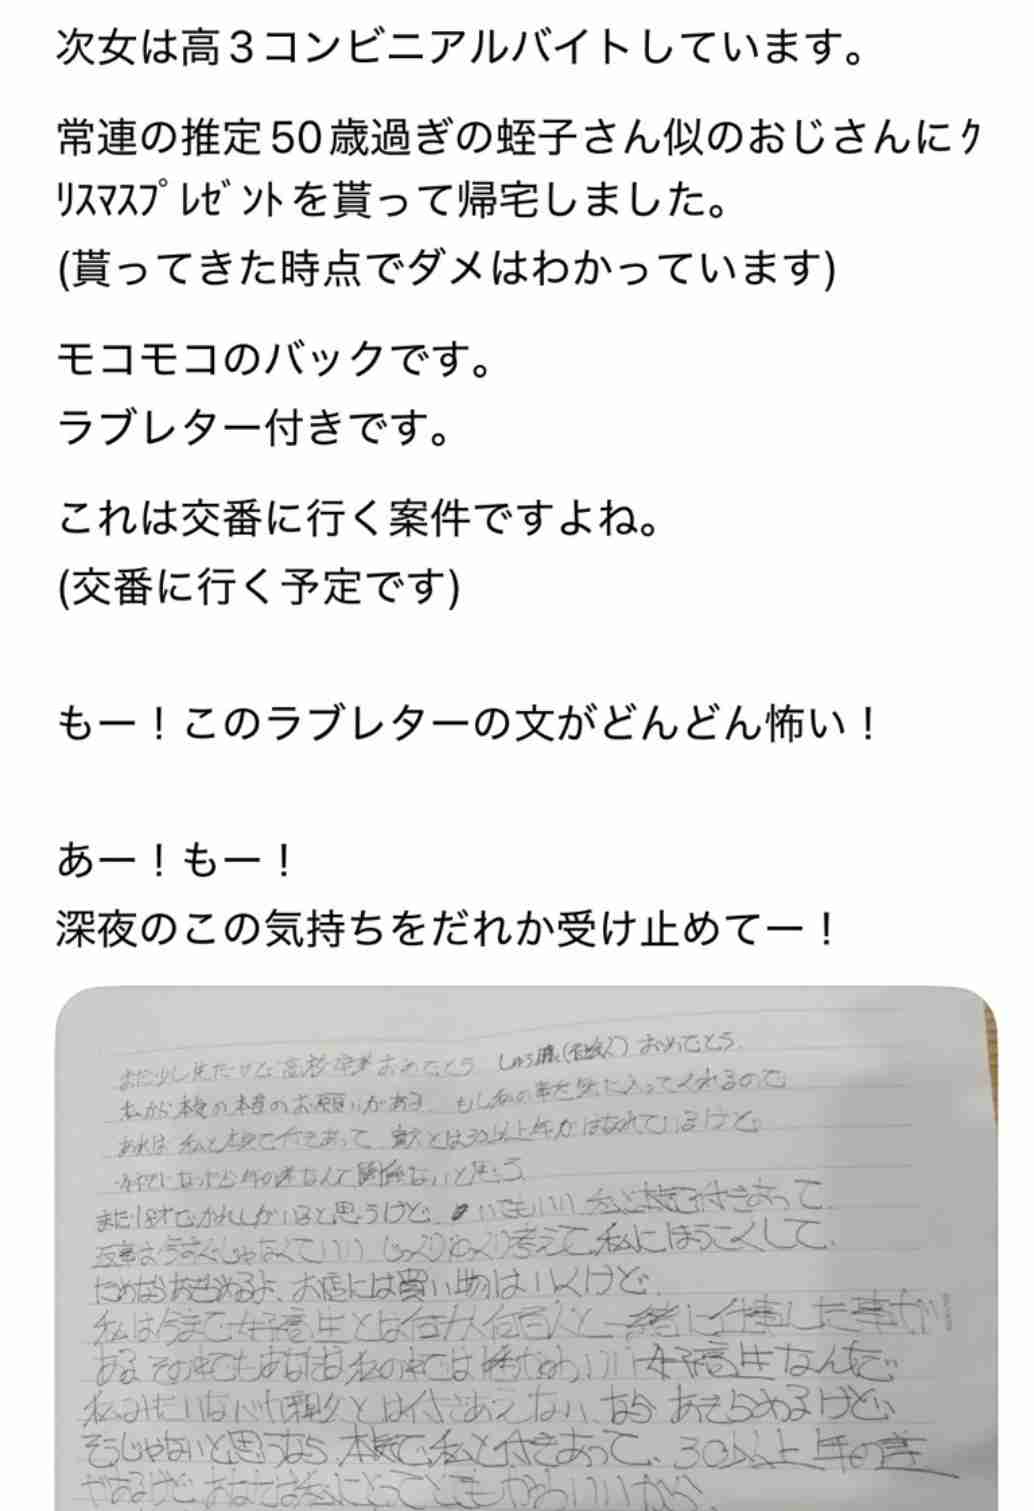 次女は高3コンビニアルバイトしています。
常連の推定50歳過ぎの蛭子さん似のおじさんにｸ
ﾘｽﾏｽﾌﾟﾚｾﾞﾝﾄを貰って帰宅しました。
(貰ってきた時点でダメはわかっています)
モコモコのバックです。
ラブレター付きです。
これは交番に行く案件ですよね。
(交番に行く予定です)
もー！このラブレターの文がどんどん怖い！
あー！もー！
深夜のこの気持ちをだれか受け止めてー！
まだ少し先だけど高校卒業おめでとう おめでとう
私から本気の本気のお願いがある もし私の事気に入ってくれるので
あれば 私と本気で付きあって 30以上年がはなれているけど
年の差なんて関係ないと思う
まだ18才でかれしがいると思うけど いてもいい 私と本気で付きあって
返事は今すぐじゃなくていい じっくりじっくり考えて私にほうこくして
だめならあきらめるよ、お店には買い物はいくけど
私は今まで女子高生とは何人 一緒に仕事した事が
ある その中でもあなたは私の中では かわいい女子高生なんだ
私みたいな とは付きあえない なら あきらめるけど
そうじゃないと思うなら 本気で私と付きあって 30以上年の差
があるけど あなたは私にとってとてもかわいいから